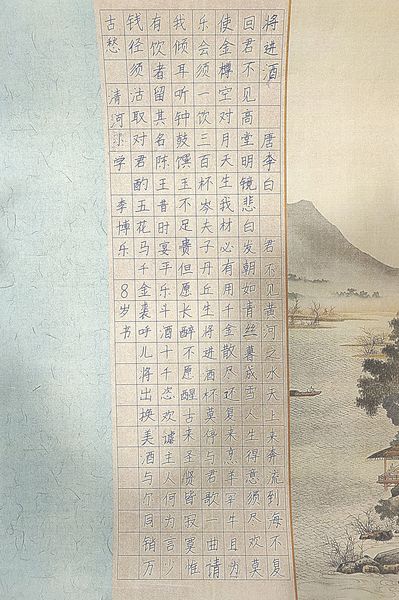 将进酒 唐李白 君不见黄河之水天上来奔流到海不复
回君不见高堂明镜悲白发朝如青丝暮成雪人生得意须尽欢莫
使金樽空对月天生我材必有用千金散尽还复来烹羊宰牛且为
乐会须一饮三百杯岑夫子丹丘生将进酒杯莫停与君歌一曲请
我倾耳听钟鼓馔玉不足贵但愿长醉不愿醒古来圣贤皆寂寞惟
有饮者留其名陈王昔时宴平乐斗酒十千恣欢谑主人何为言少
钱径须沽取对君酌五花马千金裘呼儿将出换美酒与尔同销万
古愁 清河小学 李博乐 8岁书